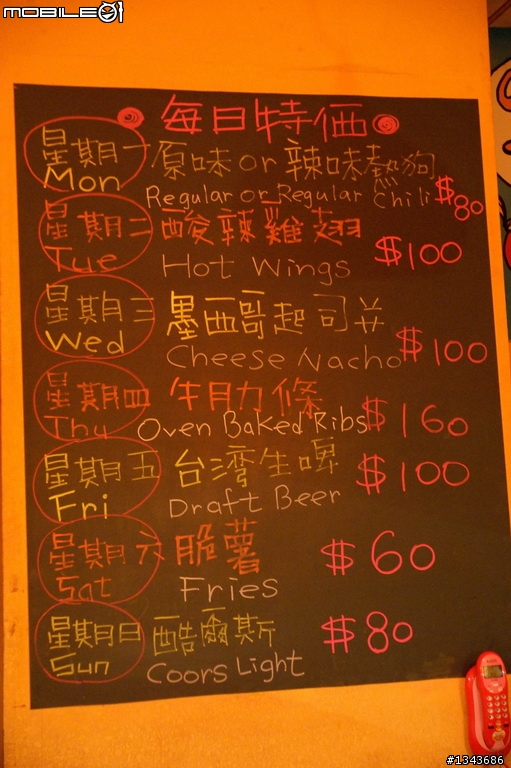 mobile01
每日特価
星期一 原味or辣味熱狗
Mon Regular or Regular Chili $80
星期二 酸辣雞翅
Tue Hot Wings $100
星期三 墨西哥起司片
Wed Cheese Nacho $100
星期四 牛肋條
Thu Oven Baked Ribs $160
星期五 台湾生啤
Fri Draft Beer $100
星期六 脆薯 $60
Sat Fries
星期日 酷爾斯 $80
Sun Coors Light
#1343686